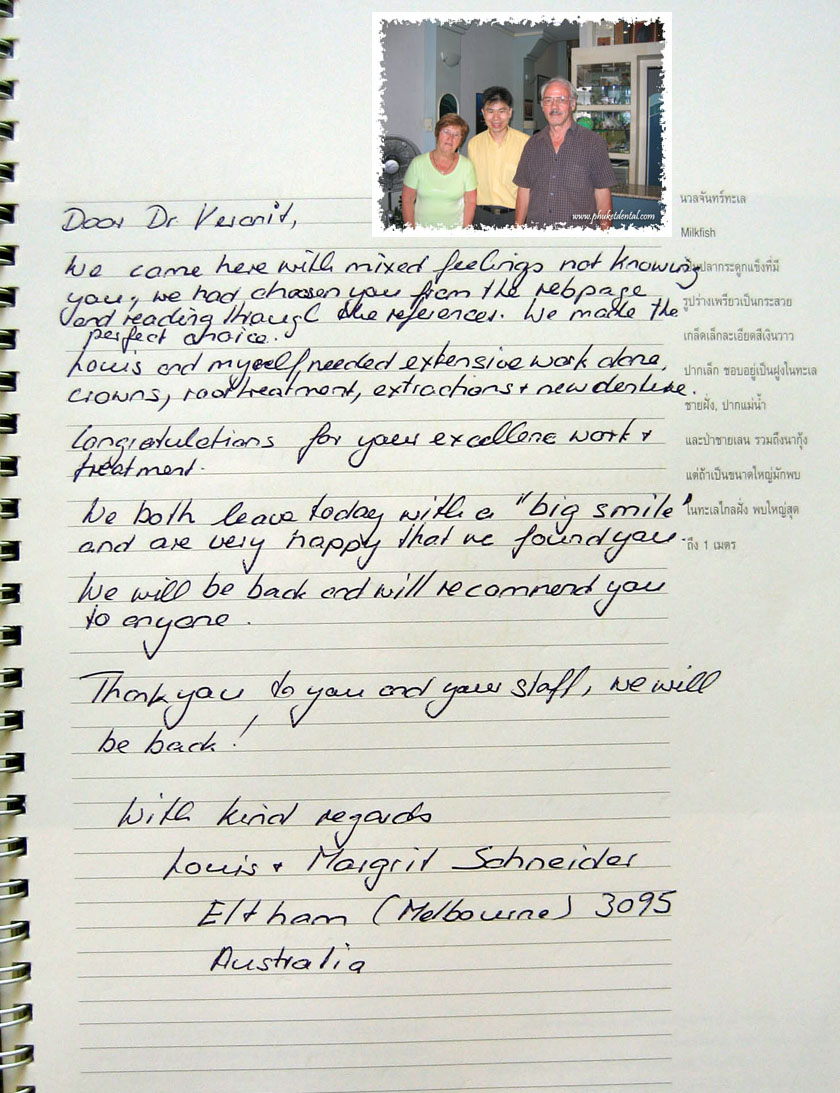 www.phuketdental.com
Dear Dr Veranit,
We came here with mixed feelings not knowing
you, we had choosen you from the webpage
and reading through the references. We made the
perfect choice.
Louis and myself, needed extensive work done,
crowns, root treatment, extractions + new denture.
Congratulations for your excellent work +
treatment.
We both leave today with a "big smile"
and are very happy that we found you.
We will be back and will recommend you
to anyone.
Thank you to you and your staff, we will
be back!
With kind regards
Louis + Margrit Schneider
Eltham (Melbourne) 3095
Australia
นวลจันทร์ทะเล
Milkfish
ปลากระดูกแข็งที่มี
รูปร่างเพรียวเป็นกระสวย
เกล็ดเล็กละเอียดสีเงินวาว
ปากเล็ก ชอบอยู่เป็นฝูงในทะเล
ชายฝั่ง, ปากแม่น้ำ
และป่าชายเลน รวมถึงนากุ้ง
แต่ถ้าเป็นขนาดใหญ่มักพบ
ในทะเลไกลฝั่ง พบใหญ่สุด
ถึง 1 เมตร